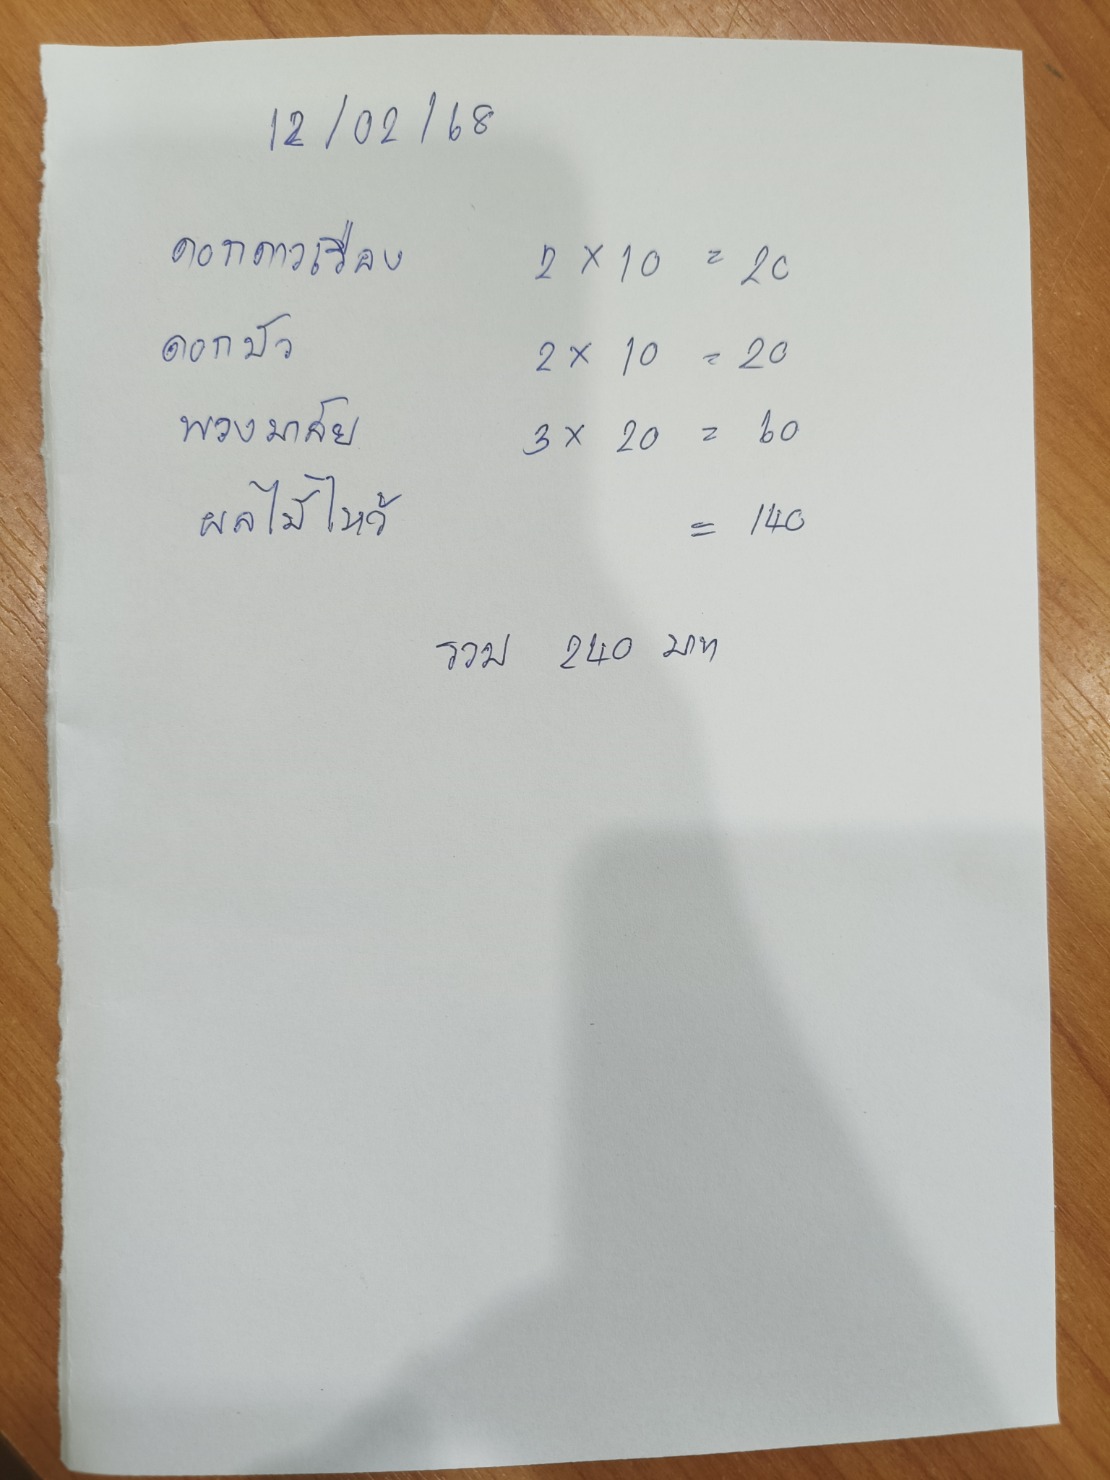 12/02/68
ดอกดาวเรือง 2 x 10 = 20
ดอกบัว 2 x 10 = 20
พวงมาลัย 3 x 20 = 60
ผลไม้ไหว้ = 140
รวม 240 บาท